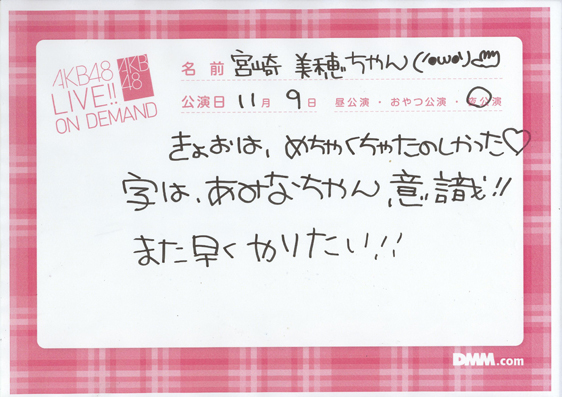 AKB48
LIVE!!
ON DEMAND
AKB
48
名前 宮崎 美穂ちゃん(´・ω・`)
公演日 11月 9日 昼公演・おやつ公演・夜公演
きょおは、めちゃくちゃたのしかった♡
字は、あみなちゃん意識!!
また早くやりたい!!
DMM.com